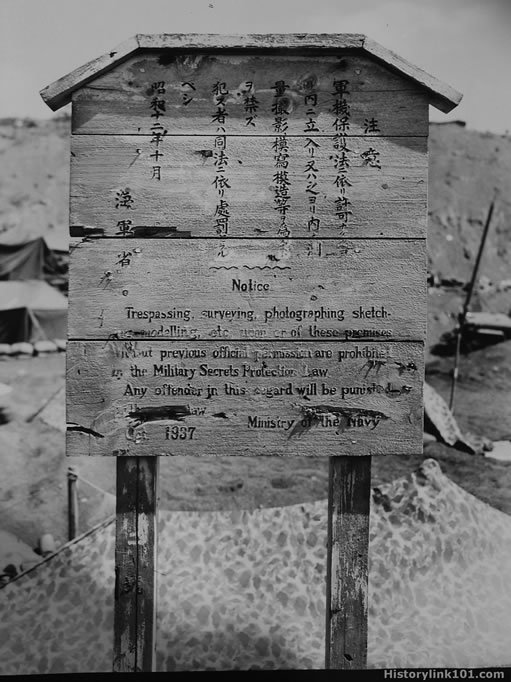 注意
軍機保護法ニ依リ許可ナク
内ニ立入リ又ハ之ヨリ内 測
量撮影模寫模造等ヲ為
ヲ禁ズ
犯ス者ハ同法ニ依リ處罰
ベシ
昭和十二年十月
海軍省
Notice
Trespassing, surveying, photographing sketch-
modelling, etc. upon or of these premises
previous official permission are prohibited
the Military Secrets Protection Law
Any offender in this regard will be punished
law
Oct 1937 Ministry of the Navy
Historylink101.com